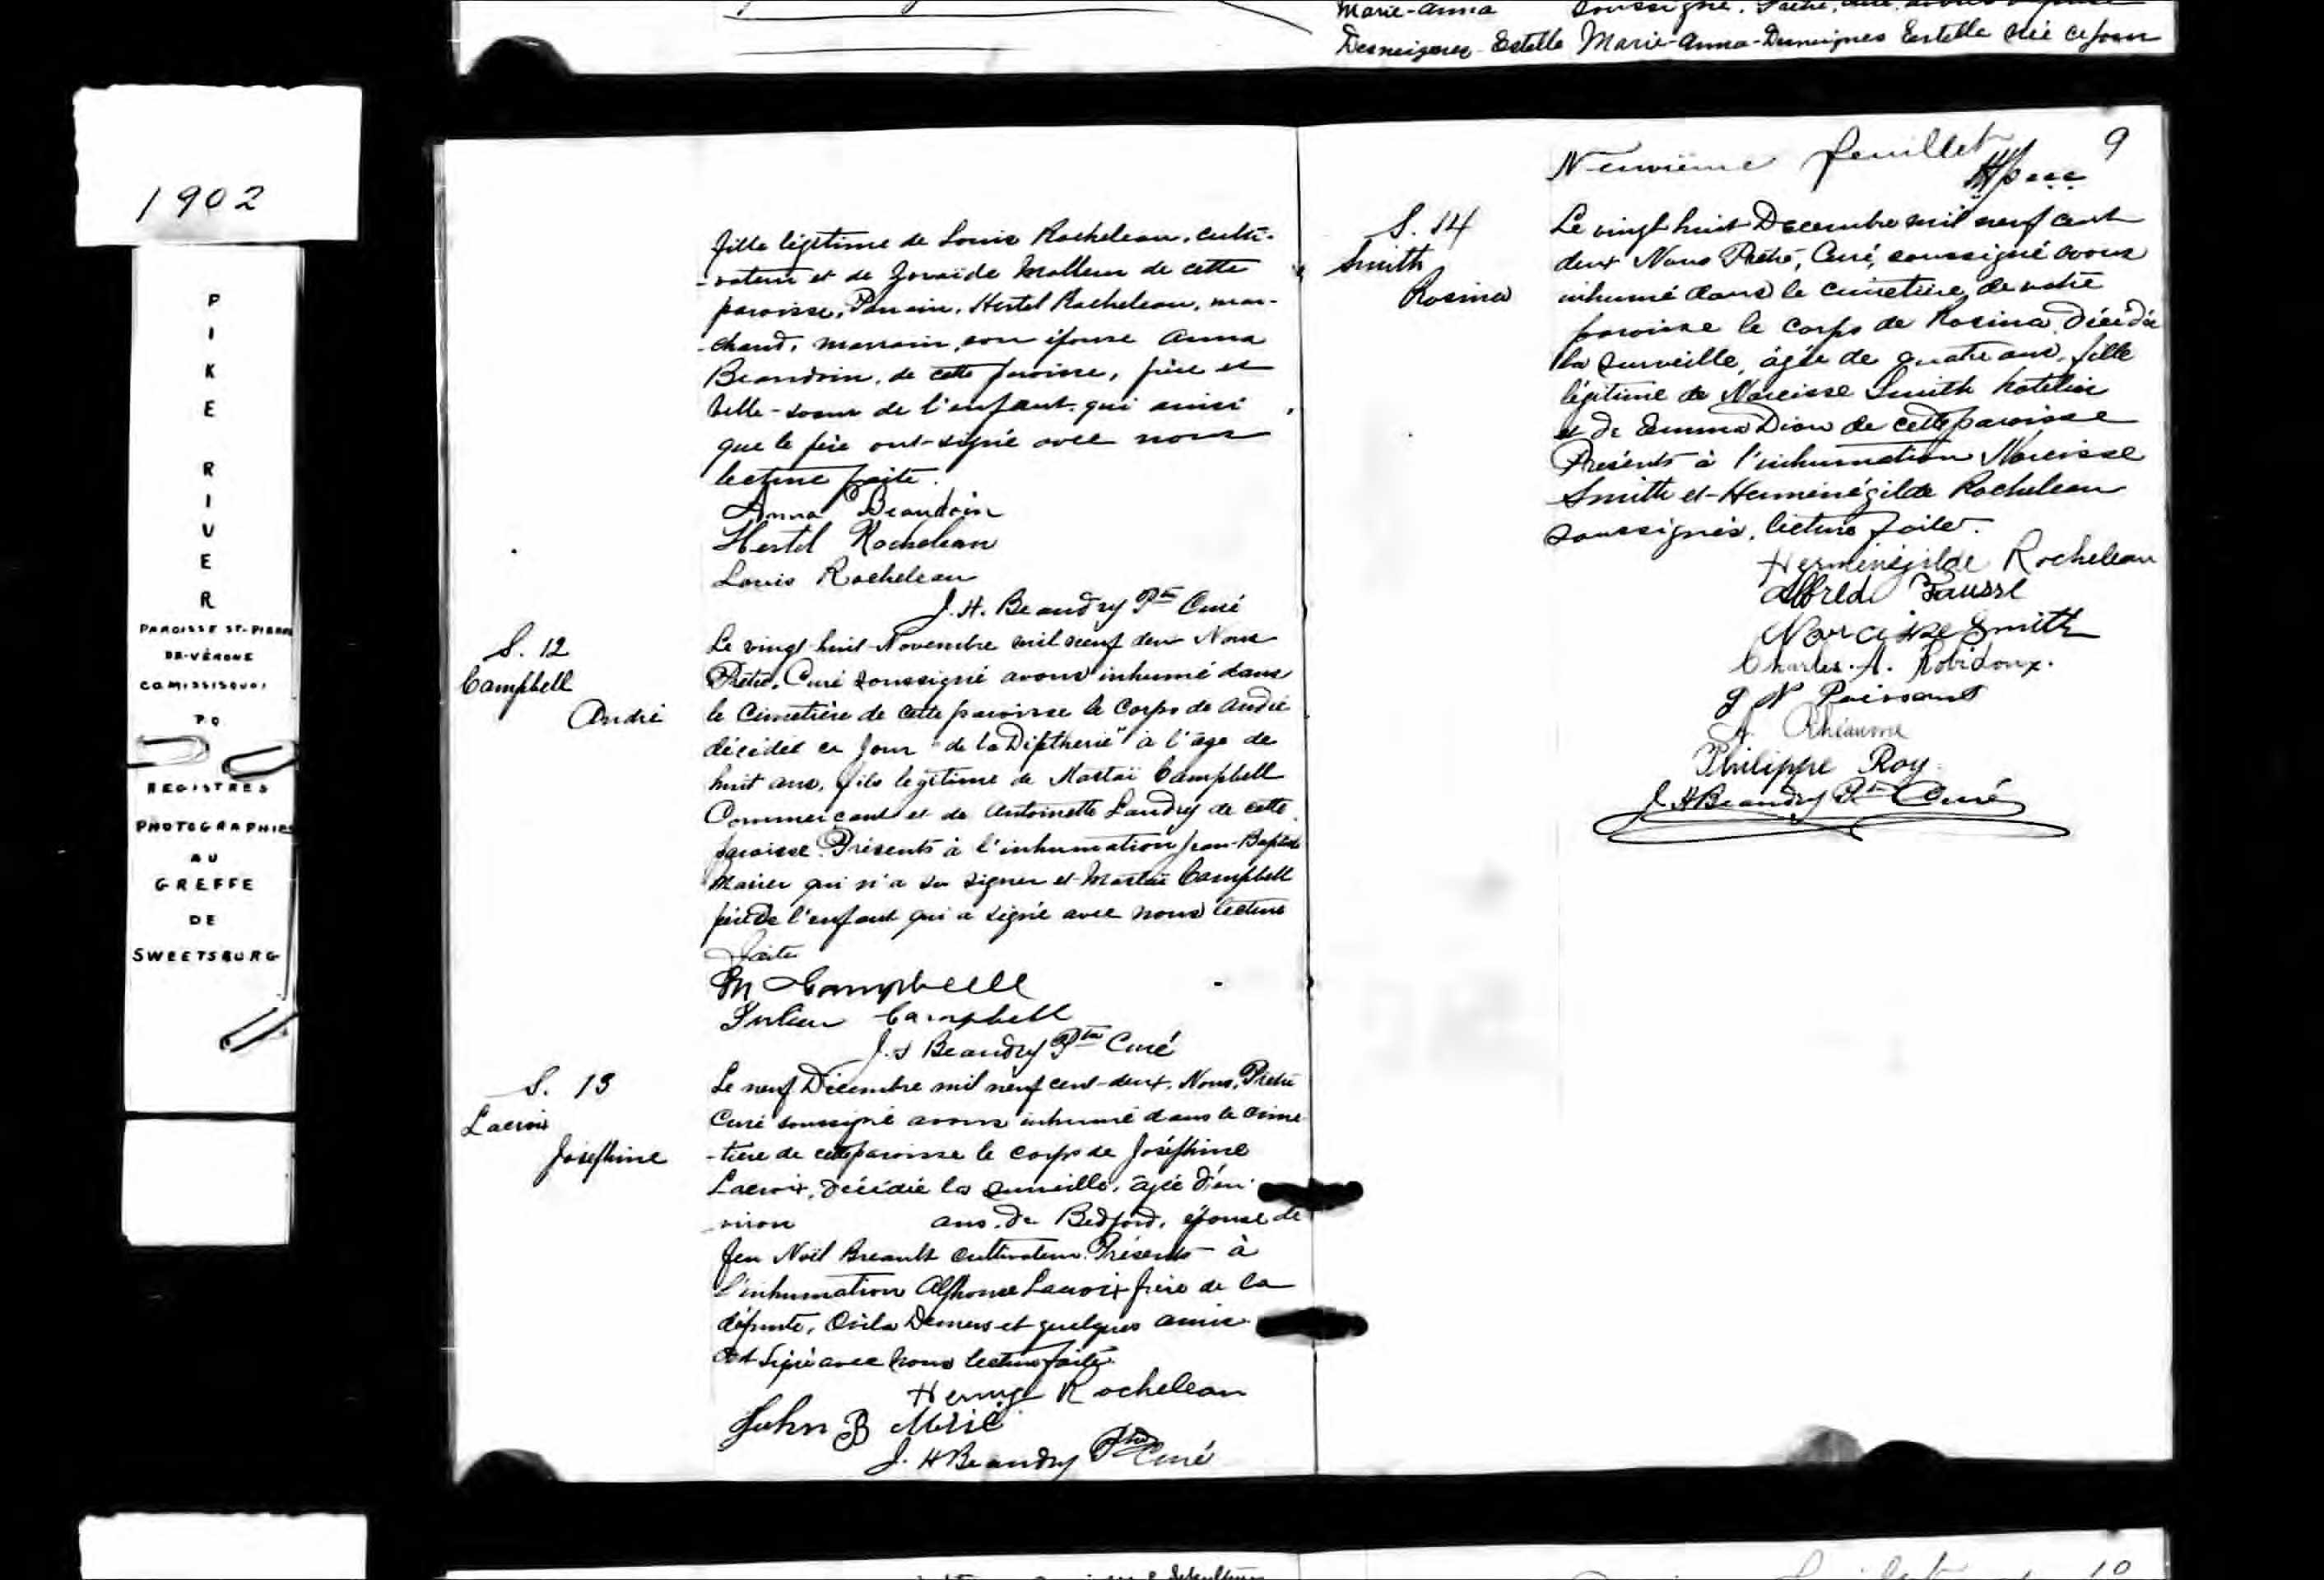 Marie-Anna soussigné. Prêtre, Curé
Desneiges-Estelle Marie-Anna-Desneiges Estelle née ce jour
1902
P
I
K
E
R
I
V
E
R
PAROISSE ST-PIERRE
DE-VÉRONE
COMISSISQUOI
P.Q
REGISTRES
PHOTOGRAPHIES
AU
GREFFE
DE
SWEETSBURG
fille légitime de Louis Rocheleau, culti-
-vateur et de Zoraïde Molleur de cette
paroisse, Parrain, Hertel Rocheleau, mar-
-chand, marraine, son épouse Anna
Beaudoin, de cette paroisse, frère et
belle-soeur de l'enfant qui ainsi
que le père ont signé avec nous
lecture faite.
Anna Beaudoin
Hertel Rocheleau
Louis Rocheleau
J. H. Beaudry Ptre Curé
S. 12
Campbell
André
Le vingt huit Novembre mil neuf deux Nous
Prêtre, Curé soussigné avons inhumé dans
le Cimetière de cette paroisse le corps de André
décédé ce jour "de la Diptherie" à l'âge de
huit ans, fils légitime de Mastaï Campbell
Commerçant et de Antoinette Landry de cette
paroisse. Présents à l'inhumation Jean-Baptiste
qui n'a su signer et Mastaï Campbell
père de l'enfant qui a signé avec nous lecture
faite
M Campbelll
Julien Campbell
J. H Beaudry Ptre Curé
S. 13
Lacroix
Joséphine
Le neuf Décembre mil neuf cent-deux, Nous, Prêtre
Curé soussigné avons inhumé dans le cime-
-tière de cette paroisse le corps de Joséphine
Lacroix, décédée la surveille, âgée d'en-
-viron ans, de Bedford, épouse de
feu Noël Breault cultivateur. Présents à
l'inhumation Alphonse Lacroix frère de la
défunte, Osila Demers et quelques amis
ont signé avec nous lecture faite.
Rocheleau
John B
J. H Beaudry Ptre Curé
Neuvième feuillet 9
S. 14
Smith
Rosina
Le vingt huit Decembre mil neuf cent
deux Nous Prêtre, Curé, soussigné avons
inhumé dans le cimetière de notre
paroisse le corps de Rosina, décédée
la surveille, âgée de quatre ans, fille
légitime de Narcisse Smith hotelier
et de Emma Dion de cette paroisse
Présents à l'inhumation Narcisse
Smith et Herménégilde Rocheleau
soussignés, lecture faite.
Herménégilde Rocheleau
Alfred Fausse
Narcisse Smith
Charles. A. Robidoux.
J N Poissant
A. Rhéaume
Philippe Roy
J. H Beaudry Ptre Curé
10